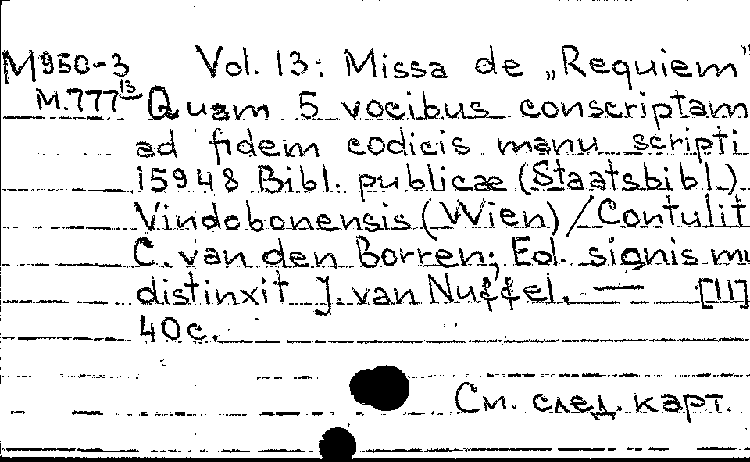 M950-3 Vol. 13: Missa de „Requiem"
M.777 13 Quam 5 vocibus conscriptam
ad fidem codicis manu scripti
15948 Bibl. publicæ (Staatsbibl.)
Vindobonensis (Wien) / Contulit
C. van den Borren; Ed. signis mu
distinxit J. van Nuffel. — [11]
40 c.
См. след. карт.